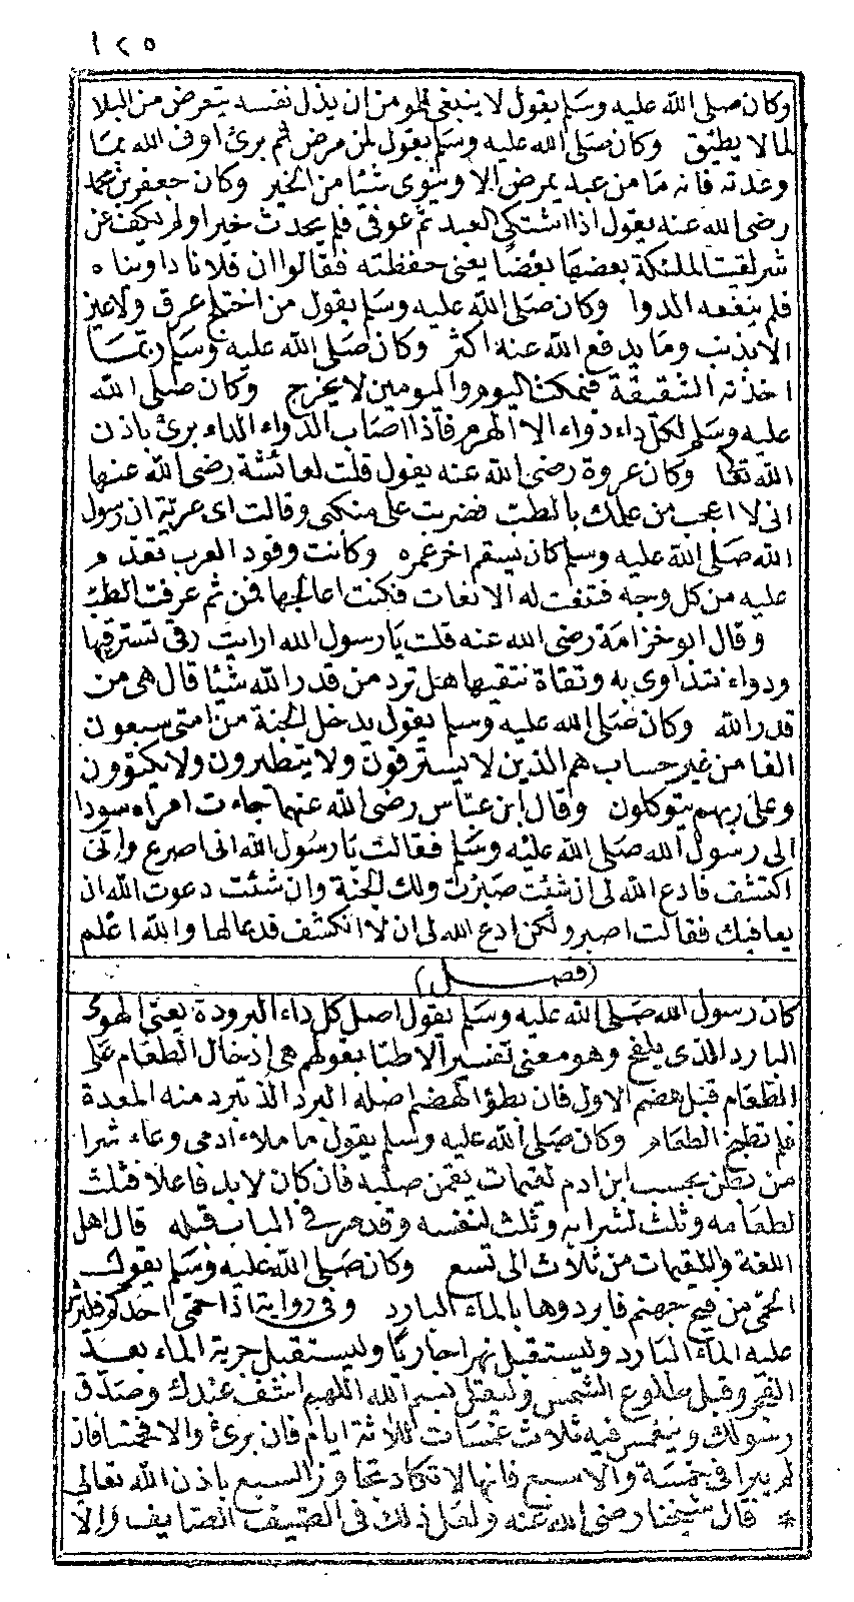 ١٢٥
وكان صلى الله عليه وسلم يقول لا ينبغى لمومن ان يذل نفسه يتعرض من البلا
لما لا يطيق وكان صلى الله عليه وسلم يقول لمن مرض ثم برئ اوف الله بما
وعدته فانه ما من عبد يمرض الا وينوى شيئا من الخير وكان جعفر بن محمد
رضى الله عنه يقول اذا اشتكى العبد ثم عوفي فلم يحدث خيرا ولم يكف عن
شر لقيت الملئكة بعضها بعضا يعنى حفظته فقالوا ان فلانا داويناه
فلم ينفعه الدوا وكان صلى الله عليه وسلم يقول من اختلج عرق ولا عين
الا بذنب وما يدفع الله عنه اكثر وكان صلى الله عليه وسلم ربما
اخذته الشقيقة فيمكث اليوم واليومين لا يخرج وكان صلى الله
عليه وسلم لكل داء دواء الا الهرم فاذا اصاب الدواء الداء برئ باذن
الله تعا وكان عروة رضى الله عنه يقول قلت لعائشة رضى الله عنها
انى لا اعجب من علمك بالطب فضربت على منكبى وقالت اى عرية ان رسول
الله صلى الله عليه وسلم كان يسقم اخر عمره وكانت وفود العرب تقدم
عليه من كل وجه فتنعت له الانعات فكنت اعالجها فمن ثم عرفت الطب
وقال ابو خزامة رضى الله عنه قلت يا رسول الله ارايت رقى نسترقيها
ودواء نتداوى به وتقاة نتقيها هل ترد من قدر الله شيئا قال هى من
قدر الله وكان صلى الله عليه وسلم يقول يدخل الجنة من امتى سبعون
الفا من غير حساب هم الذين لا يسترقون ولا يتطيرون ولا يكتوون
وعلى ربهم يتوكلون وقال ابن عباس رضى الله عنهما جاءت امراه سودا
الى رسول الله صلى الله عليه وسلم فقالت يا رسول الله انى اصرع وانى
اكتشف فادع الله لى ان شئت صبرت ولك الجنة وان شئت دعوت الله ان
يعافيك فقالت اصبر ولكن ادع الله لى ان لا انكشف فدعا لها والله اعلم
(فصل)
كان رسول الله صلى الله عليه وسلم يقول اصل كل داء البرودة يعنى الهوى
البارد الذى يلفح وهو معنى تفسير الاطبا بقولهم هى ادخال الطعام على
الطعام قبل هضم الاول فان بطؤ الهضم اصله البرد الذ تبرد منه المعدة
فلم تطبخ الطعام وكان صلى الله عليه وسلم يقول ما ملاء ادمى وعاء شرا
من بطن بحسب ابن ادم لقيمات يقمن صلبه فان كان لا بد فاعلا فثلث
لطعامه وثلث لشرابه وثلث لنفسه وقد مر في الباب قبله قال اهل
اللغة واللقيمات من ثلاث الى تسع وكان صلى الله عليه وسلم يقول
الحمى من فيح جهنم فابردوها بالماء البارد وفى رواية اذا حمى احدكم فليرش
عليه الماء البارد وليستقبل نهرا جاريا وليستقبل جرية الماء بعد
الفجر وقبل طلوع الشمس وليقل بسم الله اللهم اشف عبدك وصدق
رسولك وينغمس فيه ثلاث غمسات ثلاثة ايام فان برئ والا فخمسا فان
لم يبرا فى خمسة والا سبع فانها لا تكاد تجاوز السبع باذن الله تعالى
* قال شيخنا رضى الله عنه ولعل ذلك فى الصيف الصايف والا